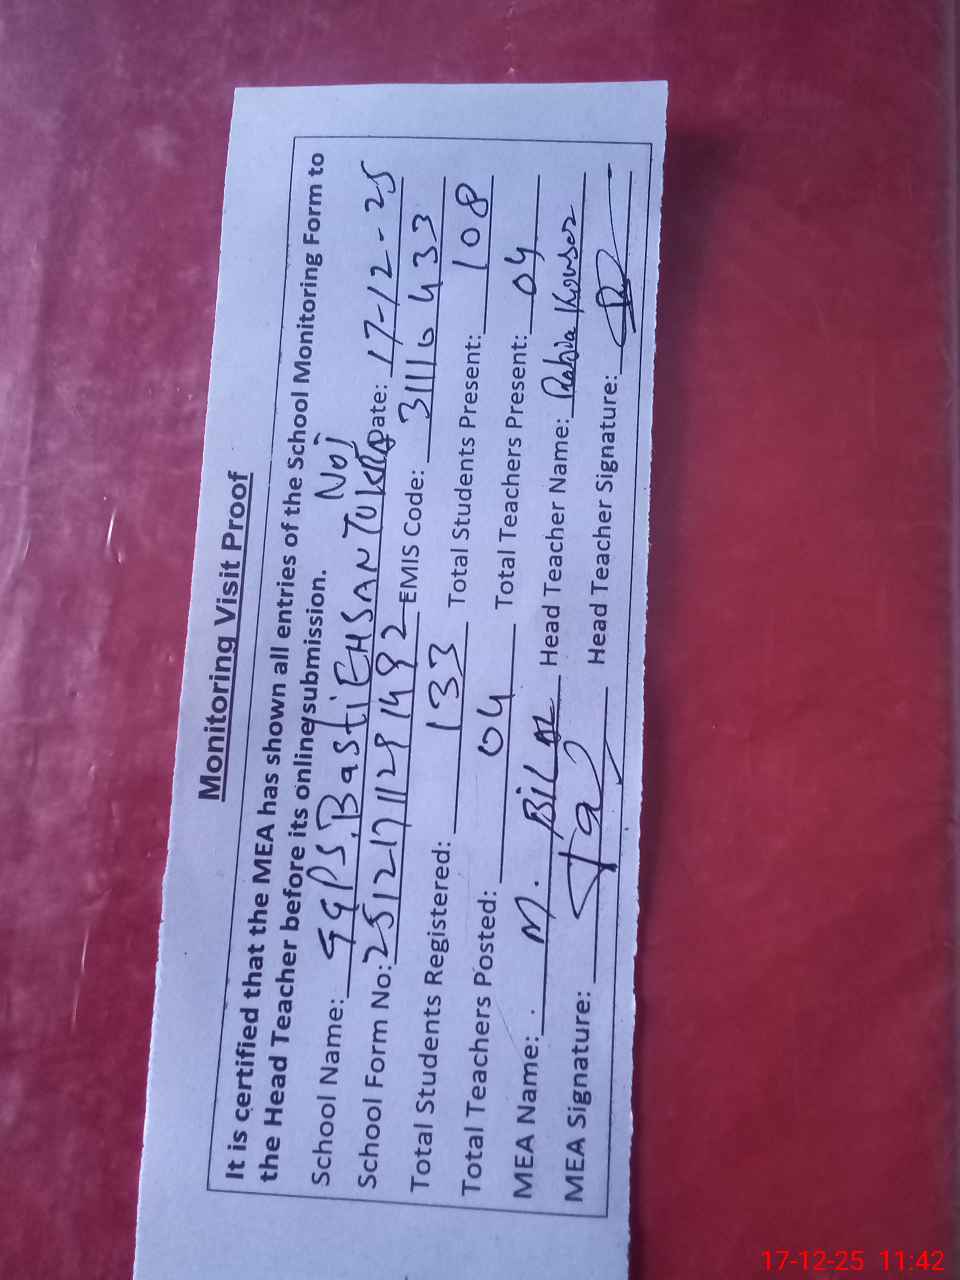 Monitoring Visit Proof
It is certified that the MEA has shown all entries of the School Monitoring Form to
the Head Teacher before its online submission.
School Name: GGPS. Basti EHSAN TUKRA No1 Date: 17-12-25
School Form No: 25121711291492 EMIS Code: 31110433
Total Students Registered: 133 Total Students Present: 108
Total Teachers Posted: 04 Total Teachers Present: 04
MEA Name: M. Bilal Head Teacher Name: Rabia Kousar
MEA Signature: Head Teacher Signature:
17-12-25 11:42